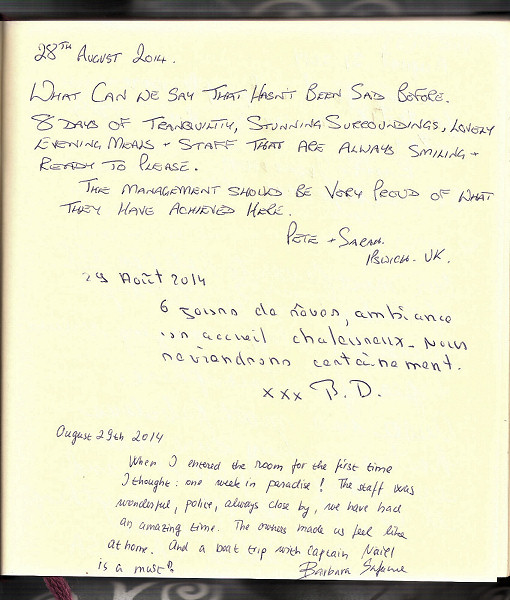 28TH AUGUST 2014.
WHAT CAN WE SAY THAT HASN'T BEEN SAD BEFORE.
8 DAYS OF TRANQUILTIY, STUNNING SURROUNDINGS, LOVELY
EVENING MEALS + STAFF THAT ARE ALWAYS SMILING +
READY TO PLEASE.
THE MANAGEMENT SHOULD BE VERY PROUD OF WHAT
THEY HAVE ACHIEVED HERE.
PETE + SARAH.
IPSWICH. UK.
29 Août 2014
6 jours de rêves, ambiance
un accueil chaleureux. Nous
reviendrons certainement.
xxx B.D.
August 29th 2014
When I entered the room for the first time
I thought: one week in paradise! The staff was
wonderful, police, always close by, we have had
an amazing time. The owners made us feel like
at home. And a boat trip with captain
is a must!
Barbara